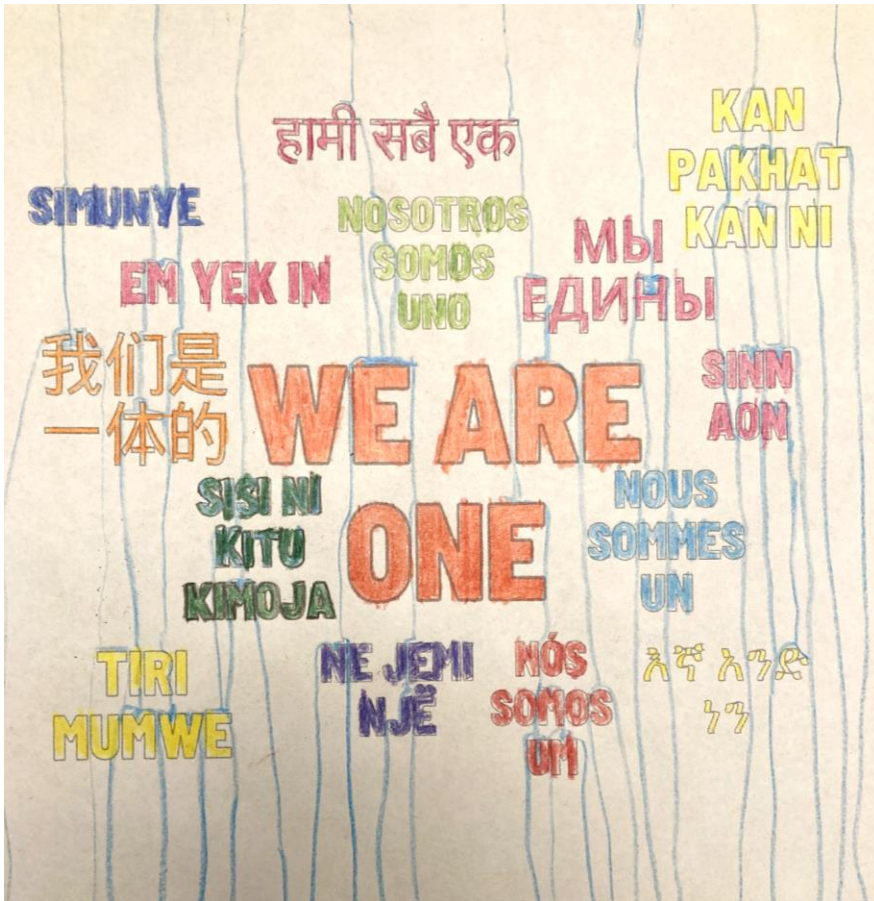 हामी सबै एक
KAN
PAKHAT
KAN NI
SIMUNYE
NOSOTROS
SOMOS
UNO
МЫ
ЕДИНЫ
EM YEK IN
我们是
一体的
WE ARE
ONE
SINN
AON
SISI NI
KITU
KIMOJA
NOUS
SOMMES
UN
TIRI
MUMWE
NE JEMI
NJË
NÓS
SOMOS
UM
እኛ አንድ
ነን